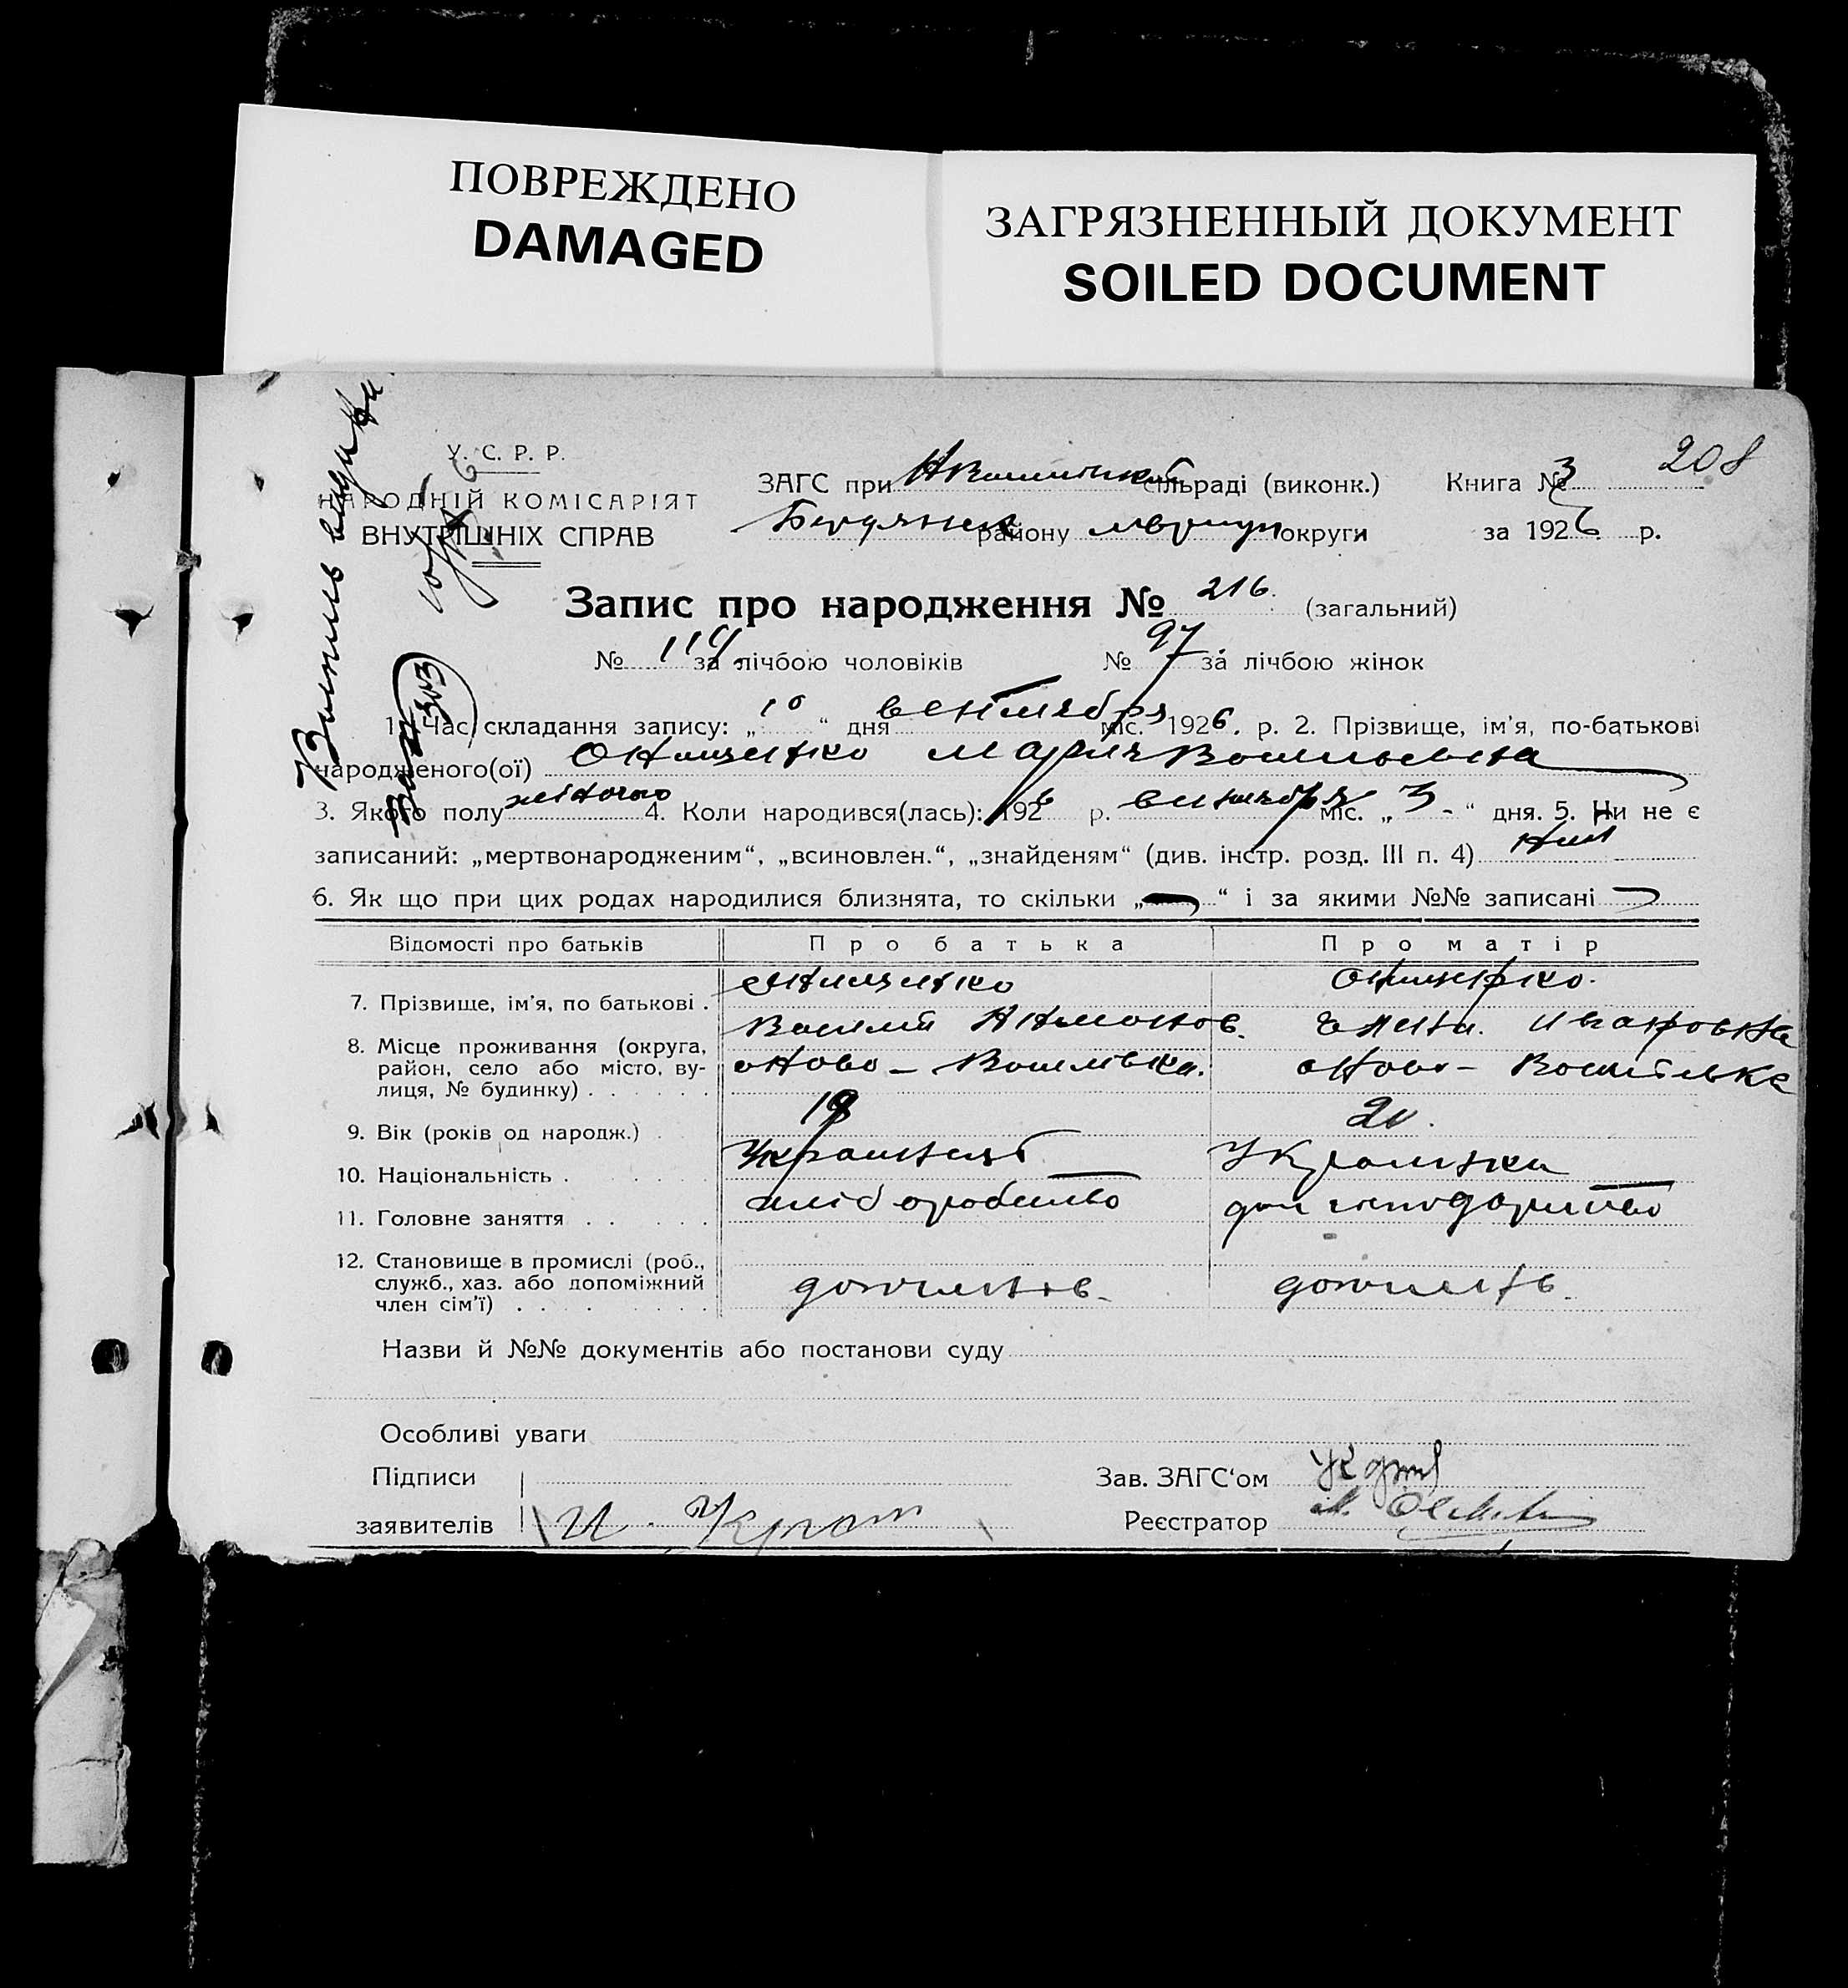 ПОВРЕЖДЕНО
DAMAGED
ЗАГРЯЗНЕННЫЙ ДОКУМЕНТ
SOILED DOCUMENT
208
У. С. Р. Р.
НАРОДНІЙ КОМІСАРІЯТ
ВНУТРІШНІХ СПРАВ
ЗАГС при сільраді (виконк.) Книга № 3
району округи за 1926 р.
Запис про народження № 216. (загальний)
№ за лічбою чоловіків № 97. за лічбою жінок
1. Час складання запису: „10“ дня сентября міс. 1926. р. 2. Прізвище, ім'я, по-батькові
народженого(ої) Онищенко Мария Васильевна
3. Якого полу жіночого 4. Коли народився(лась): 1926 р. сентября міс. „3-“ дня. 5. Чи не є
записаний: „мертвонародженим“, „всиновлен.“, „знайденям“ (див. інстр. розд. III п. 4)
6. Як що при цих родах народилися близнята, то скільки „—“ і за якими №№ записані
Відомості про батьків Про батька Про матір
7. Прізвище, ім'я, по батькові . Онищенко Онищенко.
Василий Елена. Ивановна
8. Місце проживання (округа, район, село або місто, вулиця, № будинку) . . . . . . Ново - Василівка. Ново - Василівка
9. Вік (років од народж.) 20.
10. Національність . Українець Українка
11. Головне заняття . . хліборобство дом господарство
12. Становище в промислі (роб., служб., хаз. або допоміжний член сім'ї) . . . .
Назви й №№ документів або постанови суду
Особливі уваги
Підписи
заявителів И.
Зав. ЗАГС'ом
Реєстратор